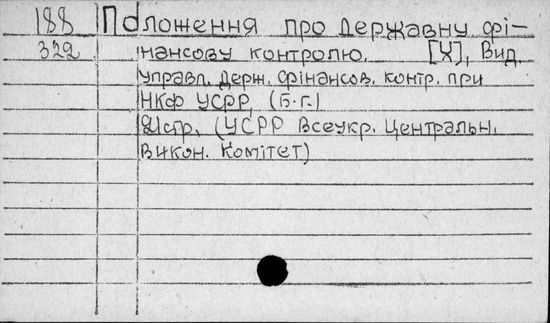 188 Положення про Державну фі-
332 нансову контролю. [Х], Вид.
Управл. Держ. Фінансов. контр. при
НКФ УСРР, (б.г.)
стр. (УСРР Всеукр. Центральн.
Викон. Комітет)